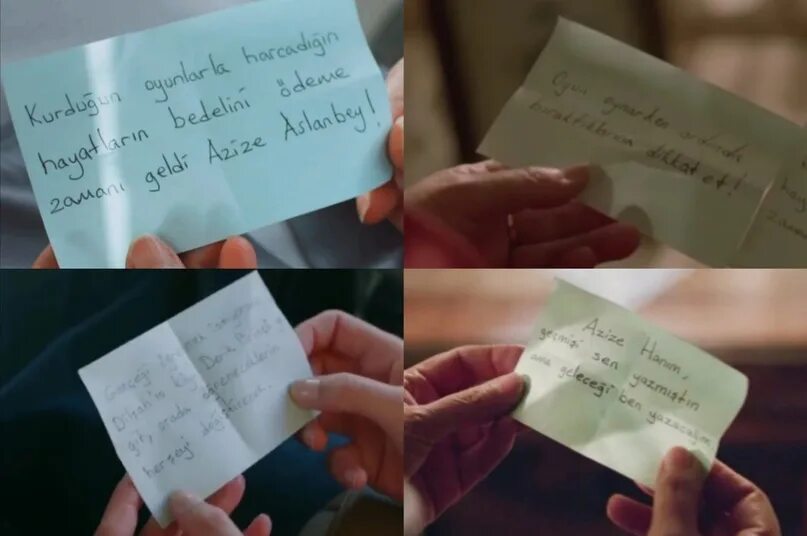 Kurduğun oyunlarla harcadığın
hayatların bedelini ödeme
zamanı geldi Azize Aslanbey!
Oyun oynarken ardında
bıraktıklarına dikkat et!
Gerçeği
Dilşah'ın köyü
git, orada öğreneceklerin
herşeyi değiştirecek.
Azize Hanım,
geçmişi sen yazmıştın
ama geleceği ben yazacağım